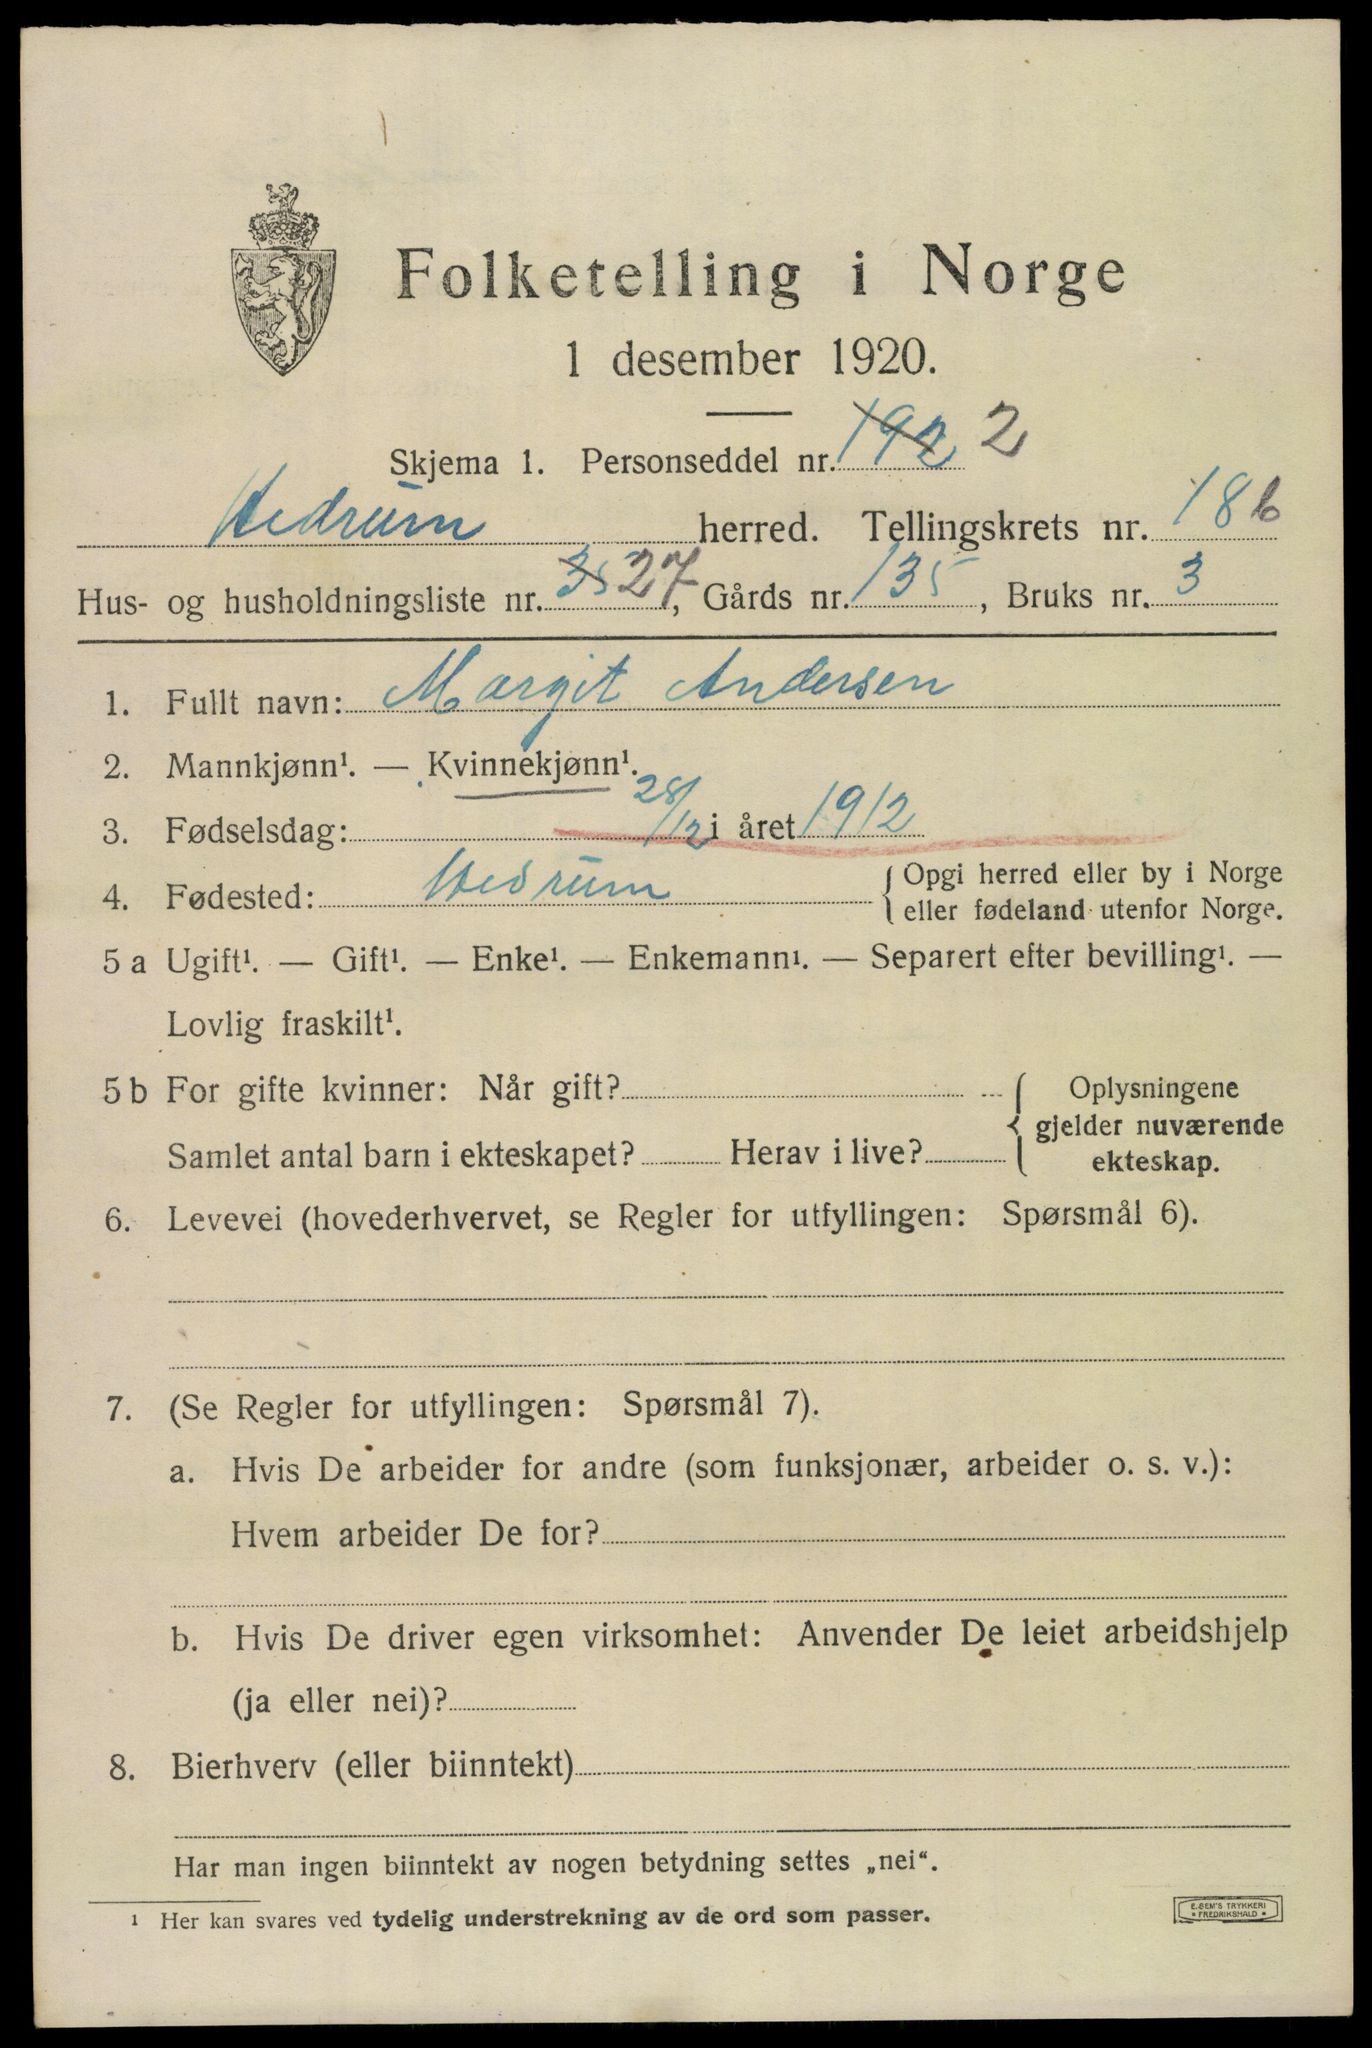 Folketelling i Norge
1 desember 1920.
Skjema 1. Personseddel nr. 192 2
Hedrum herred. Tellingskrets nr. 18b
Hus- og husholdningsliste nr. 35 27, Gårds nr. 135, Bruks nr. 3
1. Fullt navn: Margit Andersen
2. Mannkjønn¹. — Kvinnekjønn¹.
3. Fødselsdag: 28/12 i året 1912
4. Fødested: Hedrum { Opgi herred eller by i Norge
eller fødeland utenfor Norge.
5 a Ugift¹. — Gift¹. — Enke¹. — Enkemann¹. — Separert efter bevilling¹. —
Lovlig fraskilt¹.
5 b For gifte kvinner: Når gift?
Samlet antal barn i ekteskapet? Herav i live?
{ Oplysningene
gjelder nuværende
ekteskap.
6. Levevei (hovederhvervet, se Regler for utfyllingen: Spørsmål 6).
7. (Se Regler for utfyllingen: Spørsmål 7).
a. Hvis De arbeider for andre (som funksjonær, arbeider o. s. v.):
Hvem arbeider De for?
b. Hvis De driver egen virksomhet: Anvender De leiet arbeidshjelp
(ja eller nei)?
8. Bierhverv (eller biinntekt)
Har man ingen biinntekt av nogen betydning settes „nei“.
¹ Her kan svares ved tydelig understrekning av de ord som passer.
E. SEM'S TRYKKERI
* FREDRIKSHALD *